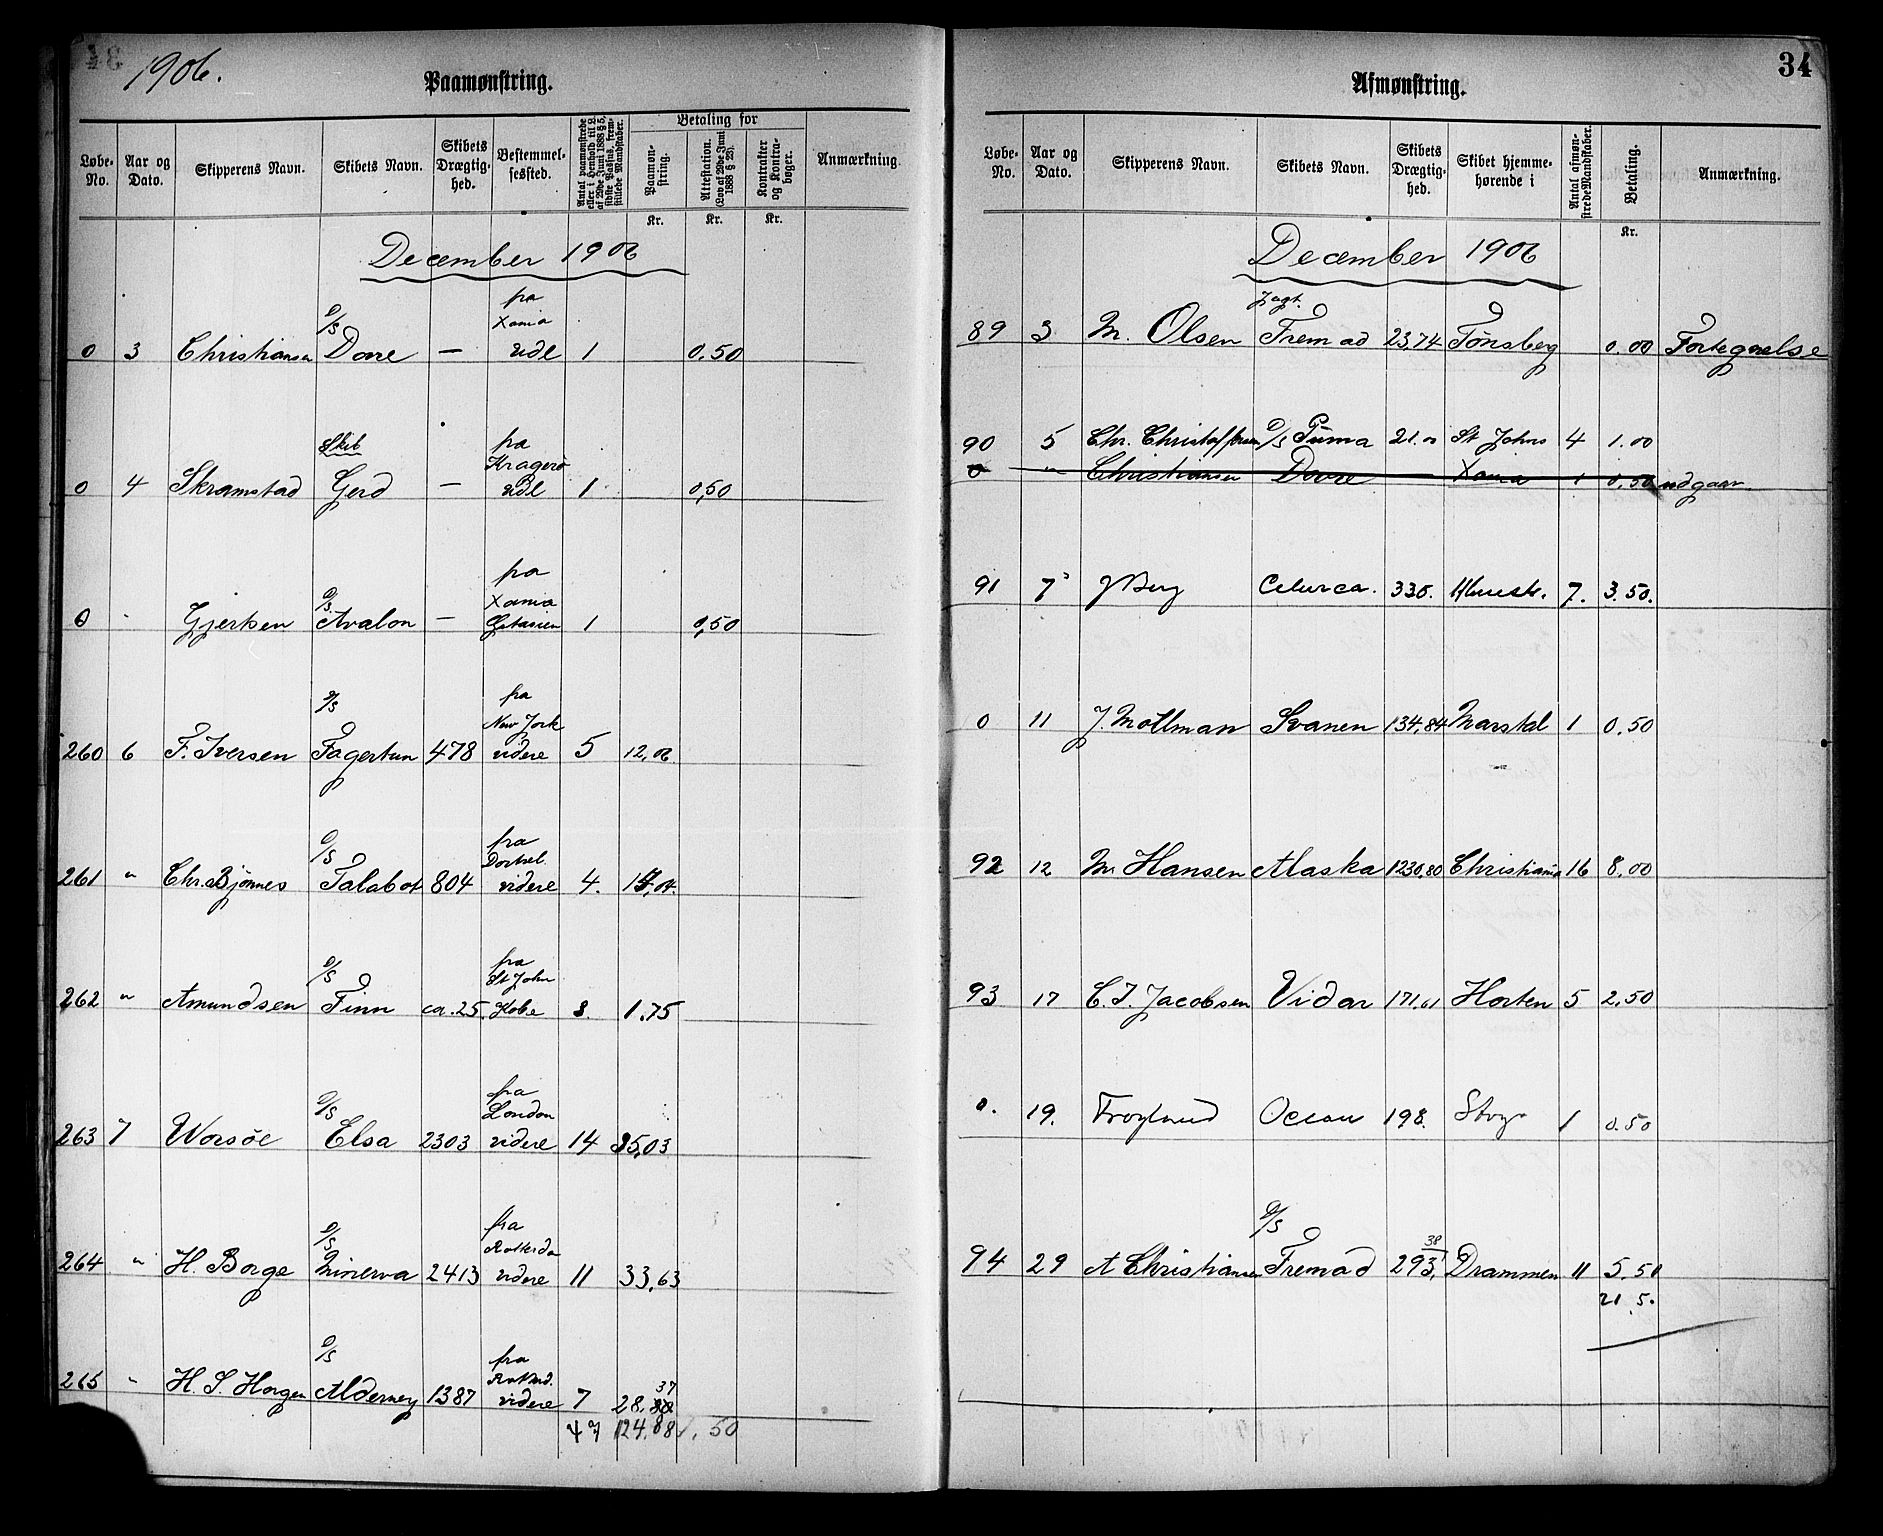 1906.
Paamønstring.
Løbe-No. Aar og Dato. Skipperens Navn. Skibets Navn. Skibets Drægtig-hed. Bestemmel-sessted. Antal paamønstrede eller i Henhold til L. af 29de Juni 1888 § 5, sidste Passus, frem-stillede Mandskaber. Betaling for Paamøn-string. Attestation. (Lov af 29de Juni 1888 § 23). Kontrakter og Kontra-bøger. Anmærkning.
Kr. Kr. Kr.
December 1906
0 3 Christiansen D/S Dovre — fra Xania udl 1 0.50
0 4 Skramstad Skib Gerd — fra Kragerø udl 1 0,50
0 " Gjerken D/S Avalon — fra Xania Ostasien 1 0,50
260 6 F. Iversen D/S Fagertun 478 fra New York videre 5 12,06
261 " Chr. Bjønnes D/S Talabot 804 fra videre 4.
262 " Amundsen D/S Finn ca. 25. fra St John Kobe 1.75
263 7 Worsöe D/S Elsa 2303 fra London videre 14 35,03
264 " H. Borge D/S Minerva 2413 fra Rotterda videre 11 33,63
265 " H. S. Horgen D/S Alderney 1387 fra Rotterd. videre 7 28.37
47 124.88 1.50
34
Afmønstring.
Løbe-No. Aar og Dato. Skipperens Navn. Skibets Navn. Skibets Drægtig-hed. Skibet hjemme-hørende i Antal afmøn-strede Mandskaber. Betaling. Anmærkning.
Kr.
December 1906
89 3 M. Olsen Jagt. Fremad 23,74 Tønsberg 0.00 Fortegnelse
90 5 Chr. Christoffersen D/S Puma 21.00 St Johns 4 1.00
0 " Christiansen Dovre — Xania 1 0,50 udgaar.
91 7 J Berg 336. 7. 3.50.
0 11 J. Mottman Svanen 134,84 Marstal 1 0.50
92 12 M Hansen Alaska 1230,80 Christiania 16 8.00
93 17 C. J. Jacobsen Vidar 171,61 Horten 5 2.50
0. 19. Frogland Ocean 198. 1 0.50
94 29 A Christiansen D/S Fremad 293,38 Drammen 11 5.50
21.5.